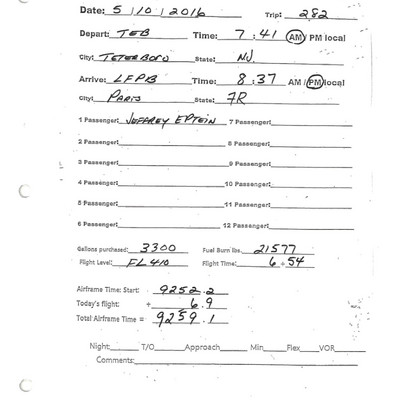 Date: 5 / 10 / 2016 Trip: 282
Depart: TEB Time: 7 : 41 AM / PM local
City: TETERBORO State: NJ.
Arrive: LFPB Time: 8 : 37 AM / PM local
City: PARIS State: FR
1 Passenger: JEFFREY EPTEIN 7 Passenger:
2 Passenger: 8 Passenger:
3 Passenger: 9 Passenger:
4 Passenger: 10 Passenger:
5 Passenger: 11 Passenger:
6 Passenger: 12 Passenger:
Gallons purchased: 3300 Fuel Burn lbs. 21577
Flight Level: FL410 Flight Time: 6 : 54
Airframe Time: Start: 9252.2
Today's flight: + 6.9
Total Airframe Time = 9259.1
Night: T/O Approach Min Flex VOR
Comments: